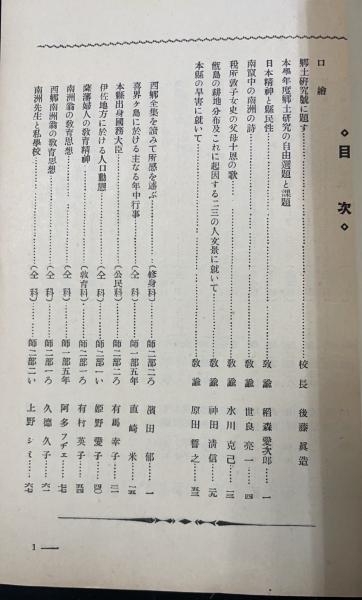 ◇目次◇
口繪
鄕土硏究號に題す……校長 後藤眞造
本學年度鄕土硏究の自由選題と課題
日本精神と縣民性……敎諭 稻森愛次郎……一
南竄中の南洲の詩……敎諭 世良亮一……四
稅所敦子女史の父母十恩の歌……敎諭 水川克己……一三
甑島の耕地分布及これに起因する二三の人文景に就いて……敎諭 神田淸信……二九
本縣の旱害に就いて……敎諭 原田督之……五三
西鄕全集を讀みて所感を述ぶ……(修身科)……師二部二ろ 濵田郁……一
喜界ヶ島に於ける主なる年中行事……(仝科)……師一部五年 直崎米……一五
本縣出身國務大臣……(公民科)……師二部二ろ 有馬幸子……三一
伊佐地方に於ける人口動態……(仝科)……師二部一い 姬野愛子……四〇
薩藩婦人の敎育精神……(敎育科)……師二部二ろ 有村英子……四五
南洲翁の敎育思想……(仝科)……師一部五年 阿多フヂエ……五七
西鄕南洲翁の敎育思想……(仝科)……師二部一ろ 久德久子……六一
南洲先生と私學校……(仝科)……師二部二い 上野シミ……六七
1